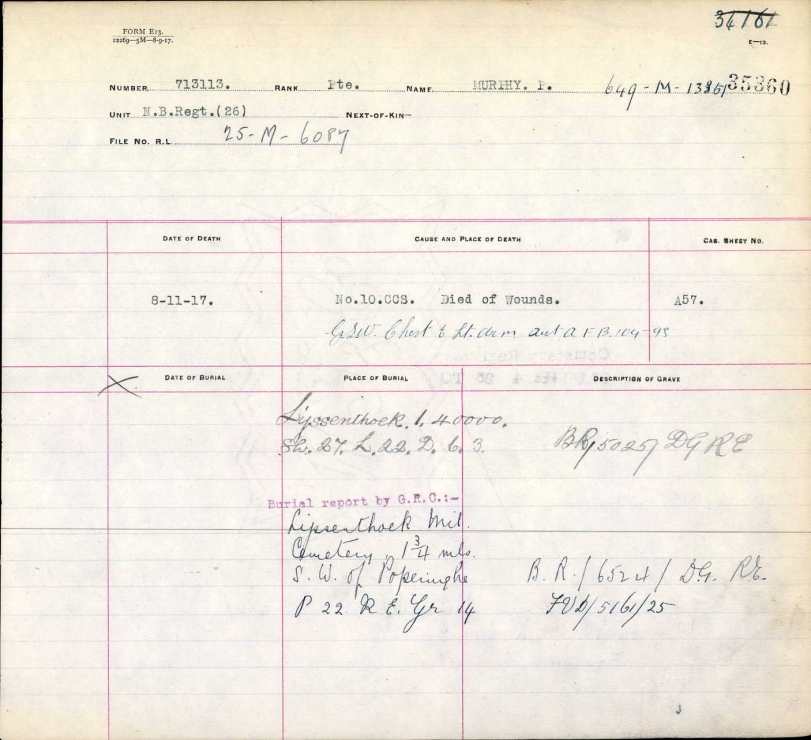 34161
FORM E13.
12269—5M—8-9-17.
E—13.
NUMBER 713113. RANK Pte. NAME MURPHY. P. 649-M-13351 35360
UNIT N.B.Regt.(26) NEXT-OF-KIN—
FILE NO. R.L. 25-M-6087
DATE OF DEATH CAUSE AND PLACE OF DEATH CAS. SHEET NO.
8-11-17. No.10.CCS. Died of Wounds. A57.
G.S.W. Chest & Lt. Arm aut A F B. 104-93
DATE OF BURIAL PLACE OF BURIAL DESCRIPTION OF GRAVE
Lijssenthoek 1.40000.
Sh. 27. L. 22. D. 6. 3. BR/5025/ DG RE
Burial report by G.R.C.:-
Lijssenthoek Mil.
Cemetery, 1 3/4 mls.
S. W. of Poperinghe B. R./6524/ DG. RE.
P 22. R E. Gr 14 FVD/5161/25